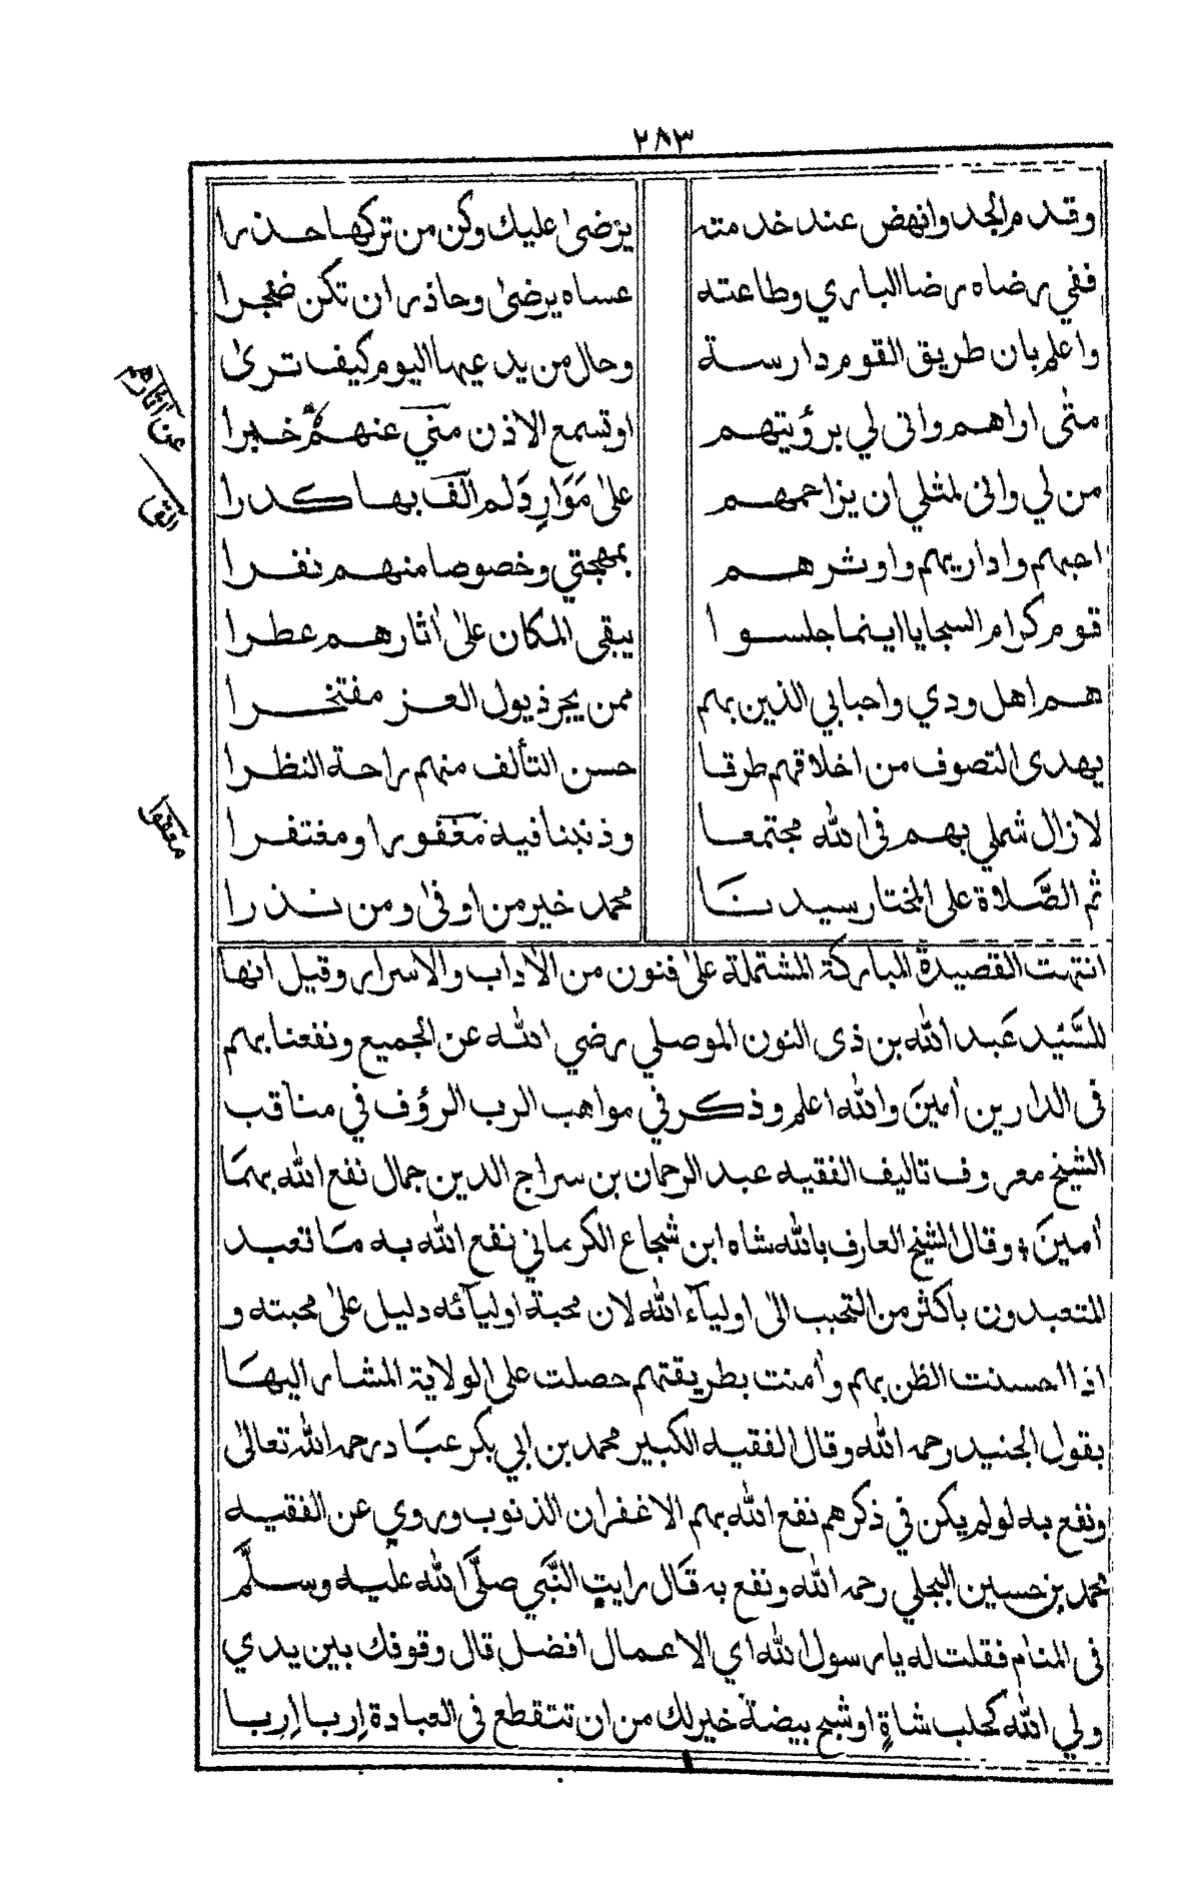 ٢٨٣
وقدم الجد وانهض عند خدمته يرضى عليك وكن من تركها حذرا
ففي رضاه رضا الباري وطاعته عساه يرضى وحاذر ان تكن ضجرا
واعلم بان طريق القوم دارسة وحال من يدعيها اليوم كيف ترى
متى اراهم وانى لي برؤيتهم او تسمع الاذن مني عنهم خبرا
من لي وانى لمثلي ان يزاحمهم على مَوَارِدَ لم الف بها كدرا
احبهم واداريهم واوثرهم بمهجتي وخصوصا منهم نفرا
قوم كرام السجايا اينما جلسوا يبقى المكان على اٰثارهم عطرا
هم اهل ودي واحبابي الذين بهم ممن يجر ذيول العز مفتخرا
يهدى التصوف من اخلاقهم طرقا حسن التألف منهم راحة النظرا
لازال شملي بهم فى الله مجتمعا وذنبنا فيه مغفورا ومغتفرا
ثم الصَّلاة على المختار سيدنَا محمد خير من اوفىٰ ومن نذرا
عن اٰثارهم
الق
معفوا
انتهت القصيدة المباركة المشتملة علىٰ فنون من الاٰداب والاسرار وقيل انها
للسَّيد عَبد الله بن ذى النون الموصلي رضي الله عن الجميع ونفعنا بهم
فى الدارين اٰمينَ والله اعلم وذكر في مواهب الرب الرؤف في مناقب
الشيخ معروف تاليف الفقيه عبد الرحمان بن سراج الدين جمال نفع الله بهمَا
اٰمينَ ؛ وقال الشيخ العارف بالله شاه ابن شجاع الكرماني نفع الله به مَا تعبد
المتعبدون باكثر من التحبب الىٰ اوليآء الله لان محبة اوليآئه دليل علىٰ محبته و
اذا احسنت الظن بهم واٰمنت بطريقتهم حصلت على الولاية المشار اليهَا
بقول الجنيد رحمه الله وقال الفقيه الكبير محمد بن ابي بكر عبَاد رحمه الله تعالىٰ
ونفع به لو لم يكن في ذكرهم نفع الله بهم الا غفران الذنوب وروي عن الفقيه
محمد بن حسين البجلي رحمه الله ونفع به قَال رايت النَّبي صلَّى الله عليه وسلَّم
فى المنام فقلت له يا رسول الله اي الاعمال افضل قال وقوفك بين يدي
ولي الله كحلب شاةٍ او شبح بيضة خير لك من ان تتقطع فى العبادة اِربا اِربا